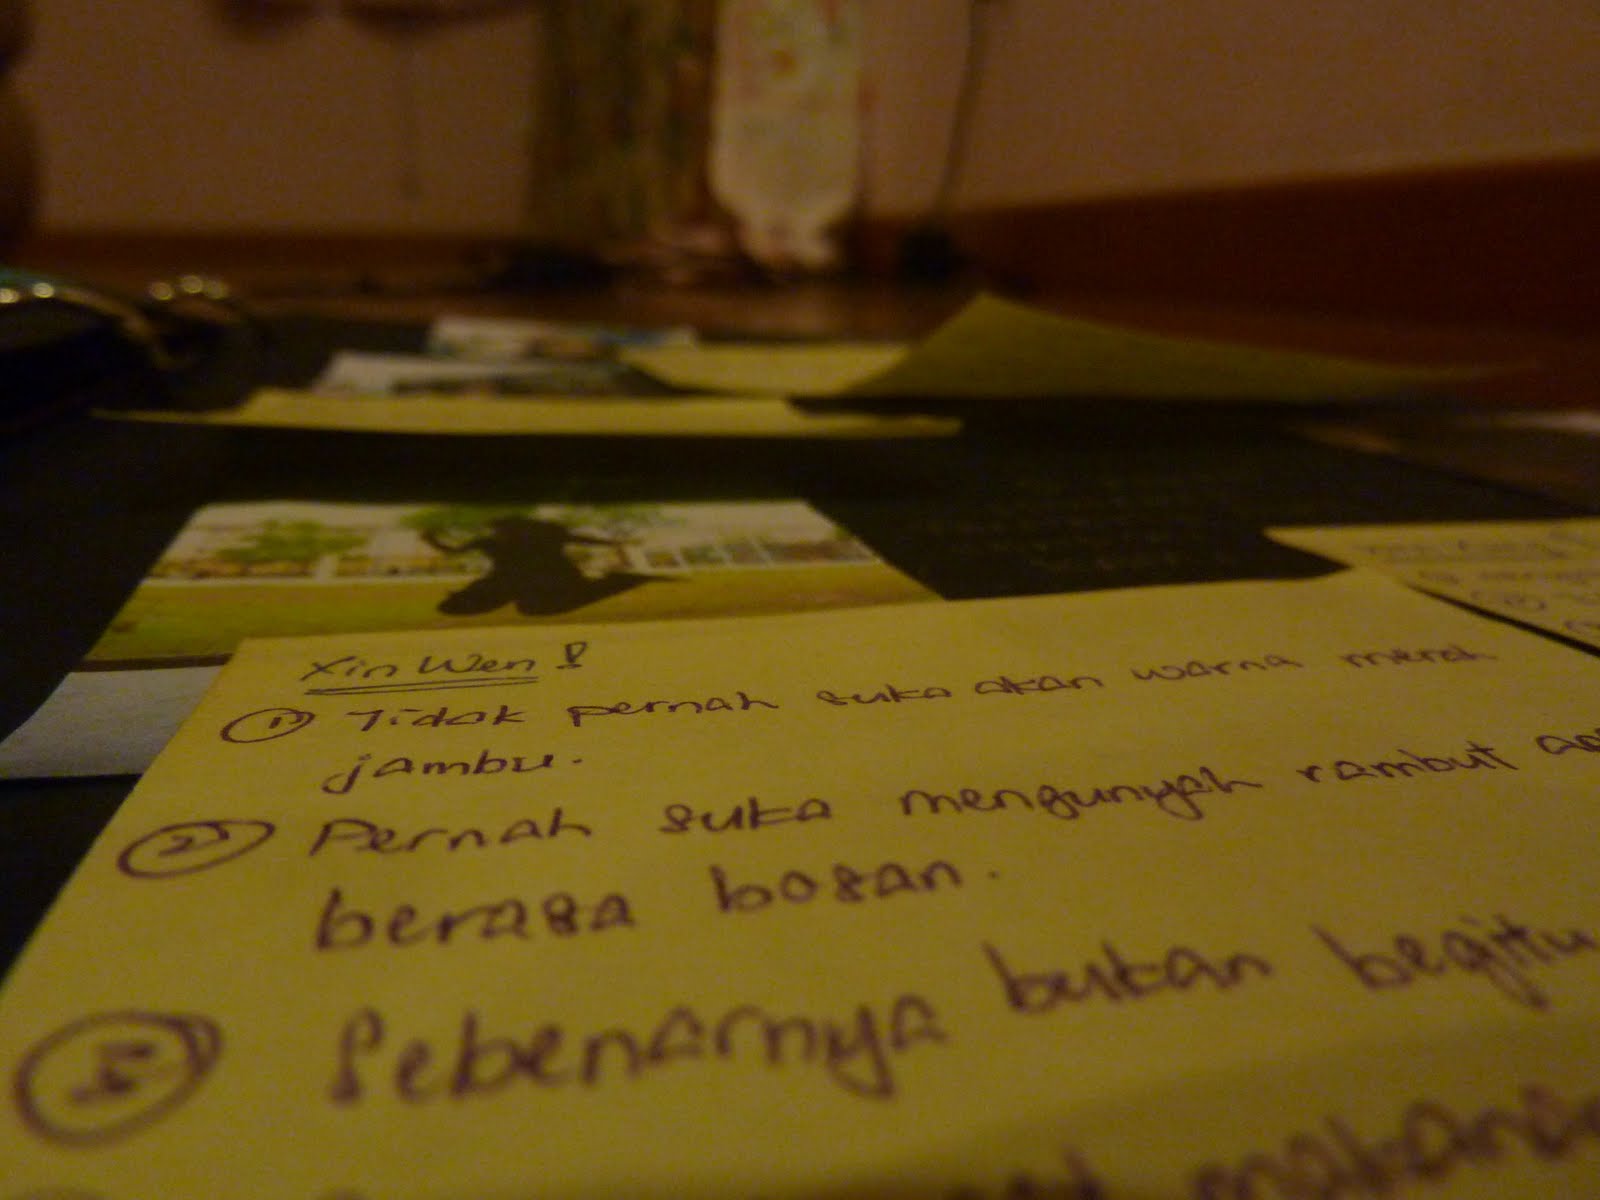 Xin Wen!
① Tidak pernah suka akan warna merah
jambu.
② Pernah suka mengunyah rambut
berasa bosan.
③ Sebenarnya bukan begitu